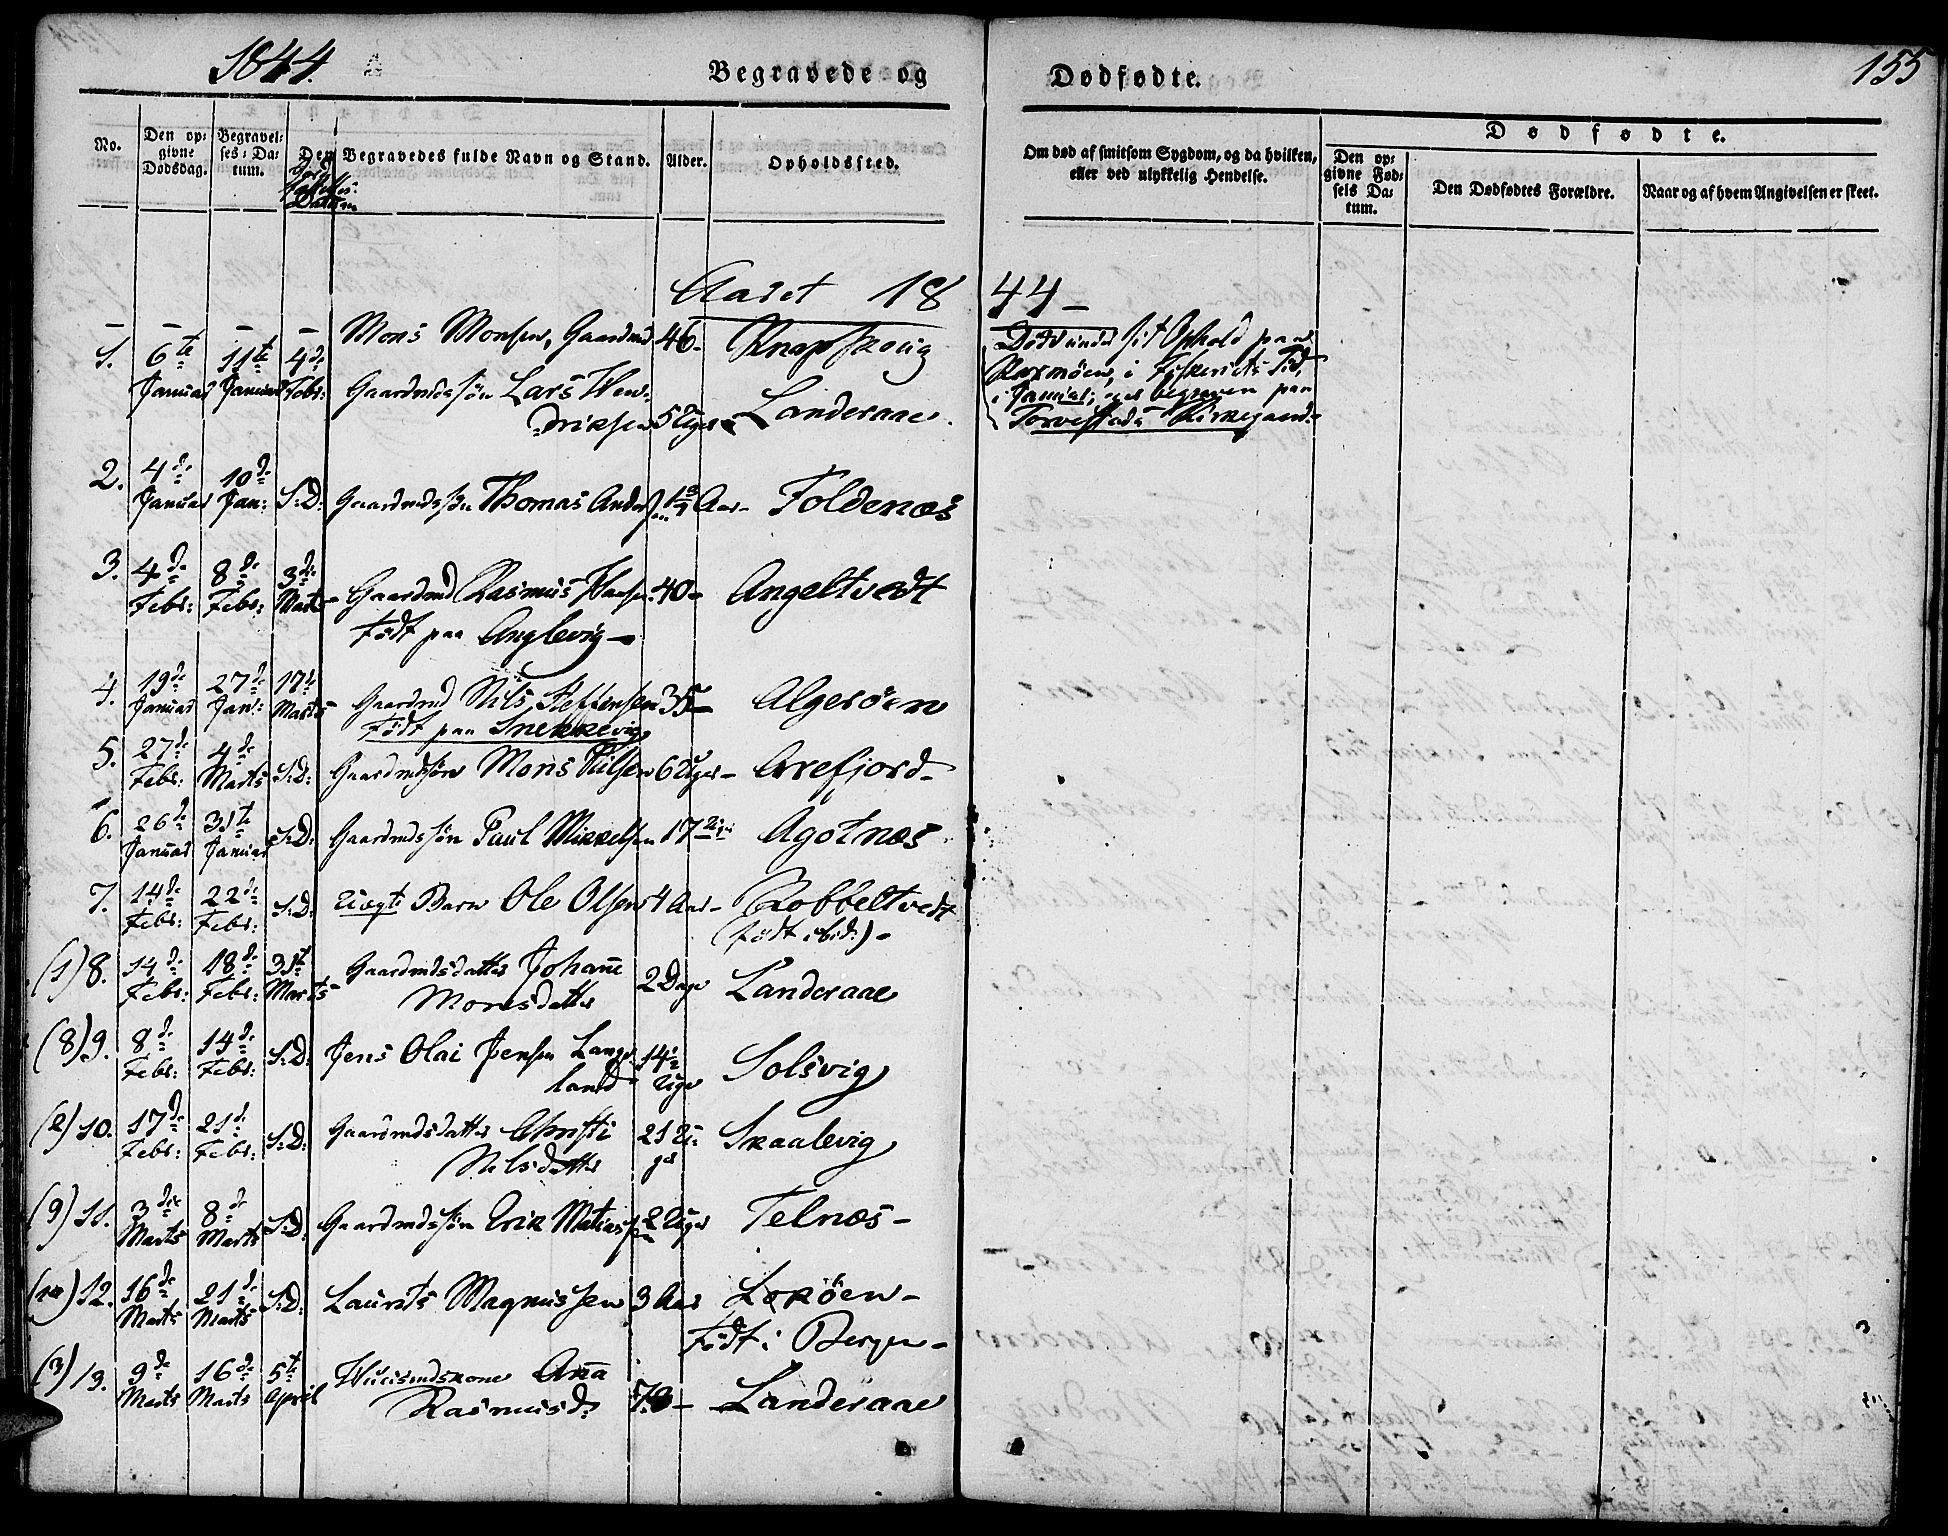 1844.
Begravede og
Dødfødte.
155
No.
Den op-
givne
Dødsdag.
Begravel-
ses-Da-
tum.
Jord-
Datum
Den Begravedes fulde Navn og Stand.
Alder.
Opholdssted.
Om død af smitsom Sygdom, og da hvilken,
eller ved ulykkelig Hendelse.
Dødfødte.
Den op-
givne Fød-
sels Da-
tum.
Den Dødfødtes Forældre.
Naar og af hvem Angivelsen er skeet.
Aaret 18 44 -
Mons Monsen, Gaardmd 46- Knapskoug
Død under sit Ophold paa
Karmøen, i Fiskeriets Tid,
i Januar; og begraven paa
Torvestads Kirkegaard.
1. 6te Januar 11te Januar 4de Febr: Gaardmdssøn Lars Hen-
driksen 5 Uger Landeraae.
2. 4de Januar 10de Jan: S:D: Gaardmdssøn Thomas Anders-
sen Aar- Foldenæs
3. 4de Febr: 8de Febr: 3de Marts Gaardmd Rasmus Hansen 40- Angeltvedt
født paa Anglevig-
4. 19de Januar 27de Jan: 17de Marts Gaardmd Nils Steffensen 35- Algerøen
Født paa Snekkevig
5. 27de Febr: 4de Marts S:D: Gaardmdssøn Mons Nilsen 6 Uger- Arefjord-
6. 26de Januar 31te Januar S:D: Gaardmdssøn Paul Mikkelsen 17 Agotnæs
7. 14de Febr: 22de Febr: S:D: Uægte Barn Ole Olsen 4 Aar- Kobbeltvedt
(født ibid:)-
(1) 8. 14de Febr: 18de Febr: 31te Marts- Gaardmdsdatter Johanne
Monsdatter 2 Dage Landeraae
(8) 9. 8de Febr: 14de Febr: S:D: Jens Olai Jensen Lange-
land 14 Uger Solsvig
(2) 10. 17de Febr: 21de Febr: S:D: Gaardmdsdatter Christi
Nilsdatter 21 U-
ger Skaalevig
(9) 11. 3die Marts 8de Marts S:D: Gaardmdssøn Erik Matiassen 2 Uger Telnæs-
(10) 12. 16de Marts 21de Marts S:D: Laurits Magnussen 3 Aar Lokøen-
Født i Bergen-
(3) 13. 9de Marts 16de Marts 5te April Huusmdskone Anna
Rasmusd: 70- Landeraae